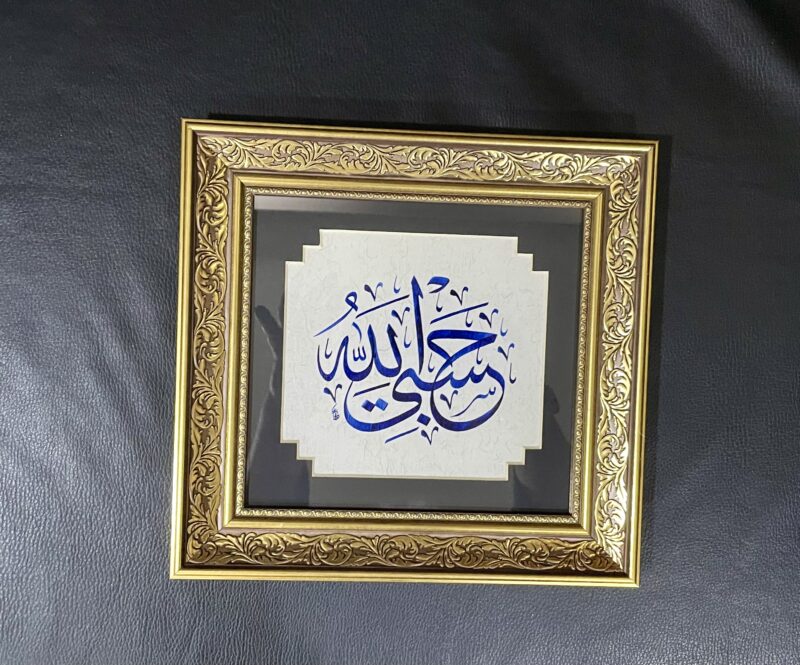 حَسْبِيَ اللَّهُ